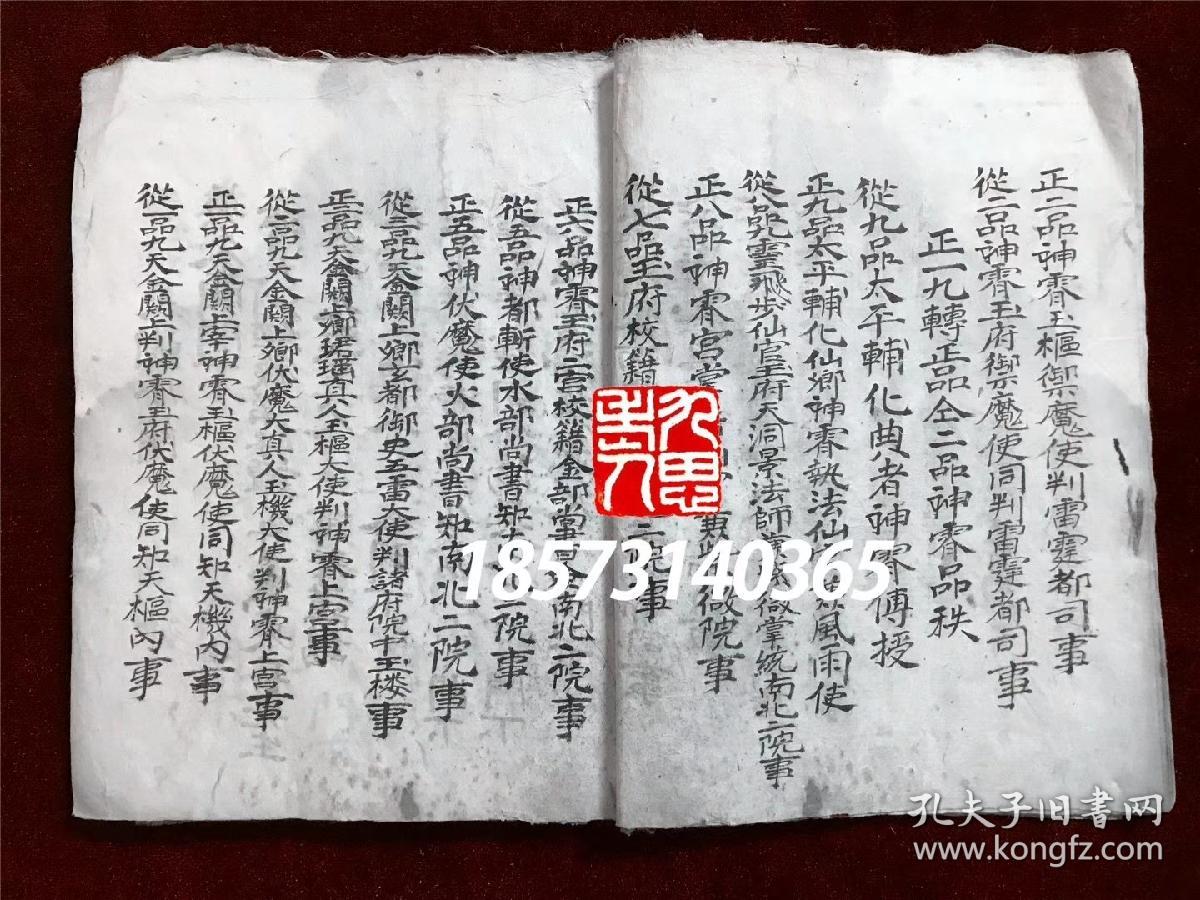 正二品神霄玉樞禦魔使判雷霆都司事
從二品神霄玉府禦魔使同判雷霆都司事
正一九轉正品全二品神霄品秩
從九品太平輔化典者神霄傳授
正九品太平輔化仙鄉神霄執法仙官 風雨使
從八品九靈飛步仙官玉府天洞景法師 掌統南北二院事
正八品神霄宮 院事
從七品玉府校籍 二院事
正六品神霄玉府二宮校籍金部尚書知南北二院事
從五品神都斬使水部尚書知 北二院事
正五品神伏魔使火部尚書知南北二院事
從三品九天金闕上鄉 都御史五雷大使判諸府院 玉楼事
正三品九天金闕上鄉 真人玉樞大使判神霄上宮事
從二品九天金闕上鄉伏魔大真人玉機大使判神霄上宮事
正一品九天金闕上宰神霄玉樞伏魔使同知天機内事
從一品九天金闕上判神霄玉府伏魔使同知天樞内事
九思
18573140365
孔夫子旧書网
www.kongfz.com